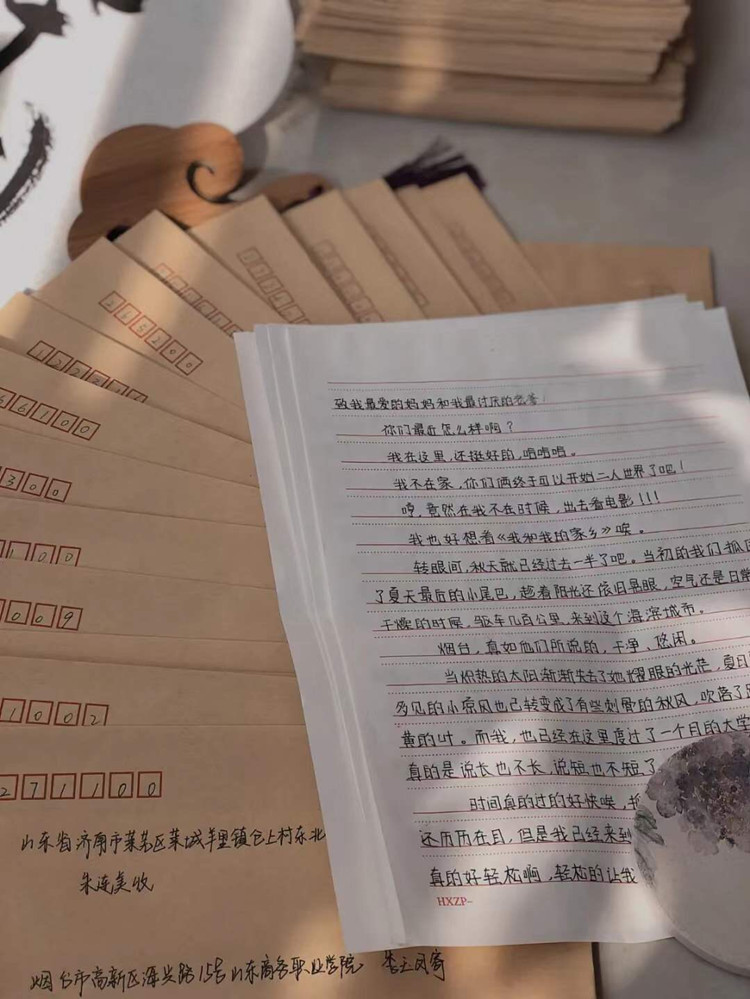 265200
66100
300
100
009
1002
271100
山东省济南市莱芜区莱城羊里镇仓上村东北
朱连美收
烟台市高新区海兴路15号山东商务职业学院
寄
致我最爱的妈妈和我最讨厌的爸爸:
你们最近怎么样啊?
我在这里,还挺好的,哈哈哈。
我不在家,你们俩终于可以开始二人世界了吧!
哼,竟然在我不在时候,出去看电影!!!
我也好想看《我和我的家乡》唉。
转眼间,秋天就已经过去一半了吧。当初的我们抓
了夏天最后的小尾巴,趁着阳光还依旧晃眼,空气还是日常
干燥的时候,驱车几百公里,来到这个海滨城市。
烟台,真如他们所说的,干净、悠闲。
当炽热的太阳渐渐失去了她耀眼的光茫,夏日
多见的小凉风也已转变成了有些刺骨的秋风,吹落了
黄的叶。而我,也已经在这里度过了一个月的大学
真的是说长也不长,说短也不短了
时间真的过的好快唉,
还历历在目,但是我已经来到
真的好轻松啊,轻松的让我
HXZP-